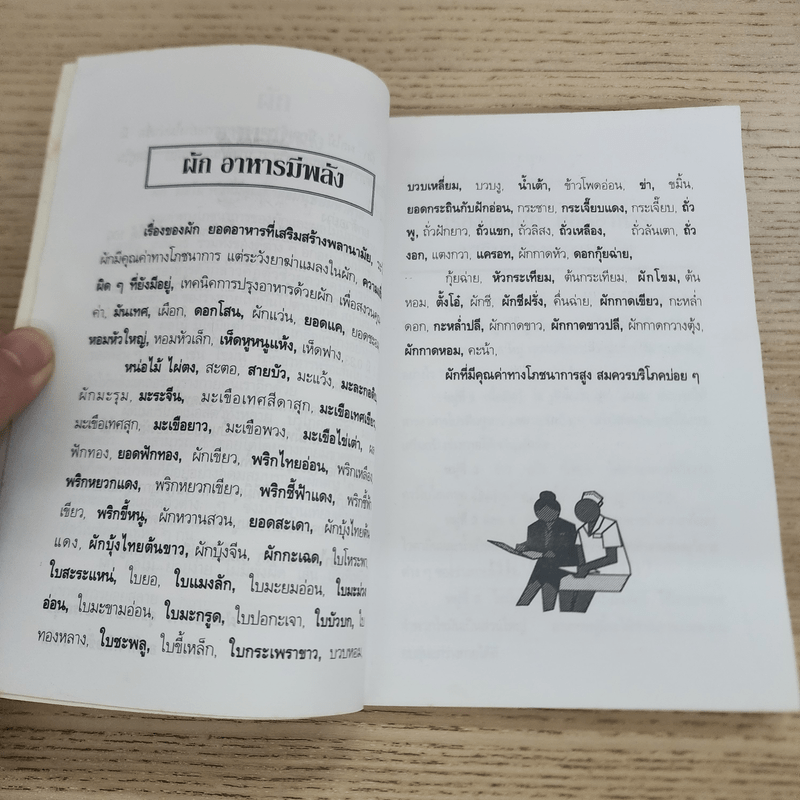 ผัก อาหารมีพลัง
เรื่องของผัก ยอดอาหารที่เสริมสร้างพลานามัย,
ผักมีคุณค่าทางโภชนาการ แต่ระวังยาฆ่าแมลงในผัก,
ผิด ๆ ที่ยังมีอยู่, เทคนิคการปรุงอาหารด้วยผัก เพื่อสงวนคุณ
ค่า, มันเทศ, เผือก, ดอกโสน, ผักแว่น, ยอดแค,
หอมหัวใหญ่, หอมหัวเล็ก, เห็ดหูหนูแห้ง, เห็ดฟาง,
หน่อไม้ ไผ่ตง, สะตอ, สายบัว, มะแว้ง,
ผักมะรุม, มะระจีน, มะเขือเทศสีดาสุก, มะเขือเทศเขียว
มะเขือเทศสุก, มะเขือยาว, มะเขือพวง, มะเขือไข่เต่า,
ฟักทอง, ยอดฟักทอง, ผักเขียว, พริกไทยอ่อน, พริกเหลือง
พริกหยวกแดง, พริกหยวกเขียว, พริกชี้ฟ้าแดง,
เขียว, พริกขี้หนู, ผักหวานสวน, ยอดสะเดา, ผักบุ้งไทยต้น
แดง, ผักบุ้งไทยต้นขาว, ผักบุ้งจีน, ผักกะเฉด, ใบโหระพา
ใบสะระแหน่, ใบยอ, ใบแมงลัก, ใบมะยมอ่อน, ใบมะม่วง
อ่อน, ใบมะขามอ่อน, ใบมะกรูด, ใบปอกะเจา, ใบบัวบก,
ทองหลาง, ใบชะพลู, ใบขี้เหล็ก, ใบกระเพราขาว, บวบหอม,
บวบเหลี่ยม, บวบงู, น้ำเต้า, ข้าวโพดอ่อน, ข่า, ขมิ้น,
ยอดกระถินกับฝักอ่อน, กระชาย, กระเจี๊ยบแดง, กระเจี๊ยบ, ถั่ว
พู, ถั่วฝักยาว, ถั่วแขก, ถั่วลิสง, ถั่วเหลือง, ถั่วลันเตา, ถั่ว
งอก, แตงกวา, แครอท, ผักกาดหัว, ดอกกุ้ยฉ่าย,
กุ้ยฉ่าย, หัวกระเทียม, ต้นกระเทียม, ผักโขม, ต้น
หอม, ตั้งโอ๋, ผักชี, ผักชีฝรั่ง, คื่นฉ่าย, ผักกาดเขียว, กะหล่ำ
ดอก, กะหล่ำปลี, ผักกาดขาว, ผักกาดขาวปลี, ผักกาดกวางตุ้ง,
ผักกาดหอม, คะน้า,
ผักที่มีคุณค่าทางโภชนาการสูง สมควรบริโภคบ่อย ๆ